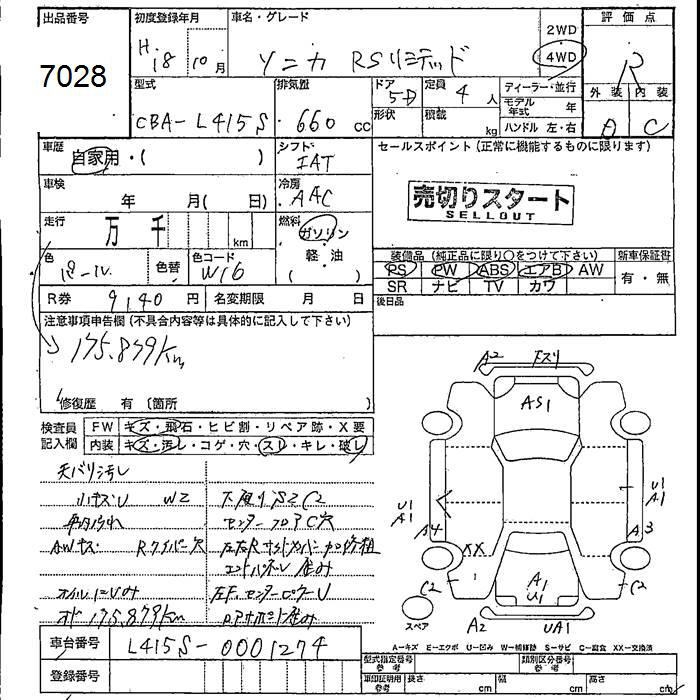 出品番号 初度登録年月 車名・グレード 2WD 評価点
7028 H.18 10月 ソニカ RSリミテッド 4WD 3
型式 排気量 ドア 定員 ディーラー・並行 外装 内装
CBA-L415S 660 cc 5D 4人 モデル年式 年 A C
形状 積載 kg ハンドル 左・右
車歴 シフト セールスポイント (正常に機能するものに限ります)
自家用・( ) IAT
車検 冷房
年 月( 日) AAC 売切りスタート
SELLOUT
走行 万 千 km 燃料 ガソリン
軽・油
( )
色 色替 色コード W16
装備品 (純正品に限り○をつけて下さい) 新車保証書
PS PW ABS エアB AW 有・無
SR ナビ TV カワ
R券 9140円 名変期限 月 日 後日品
注意事項申告欄 (不具合内容等は具体的に記入して下さい)
175,879Km
修復歴 有 〔箇所 〕
検査員記入欄 FW キズ・飛石・ヒビ割・リペア跡・X要
内装 キズ・汚レ・コゲ・穴・スレ・キレ・破レ
天バリ汚し
小キズU W2
AWキズ Rワイパー欠
センターフロアC穴
オイルにじみ
オド175,879Km
A2 下スリ
AS1
U1
A1
A4
U1
A1
A3
XX
C2
A1
U1
C2
スペア
A2 UA1
A—キズ E—エクボ U—凹み W—補修跡 S—サビ C—腐食 XX—交換済
車台番号 L415S-0001274
登録番号
型式指定番号 参考 類別区分番号 参考
車印証明用 参考 長さ cm 幅 cm 高さ cm